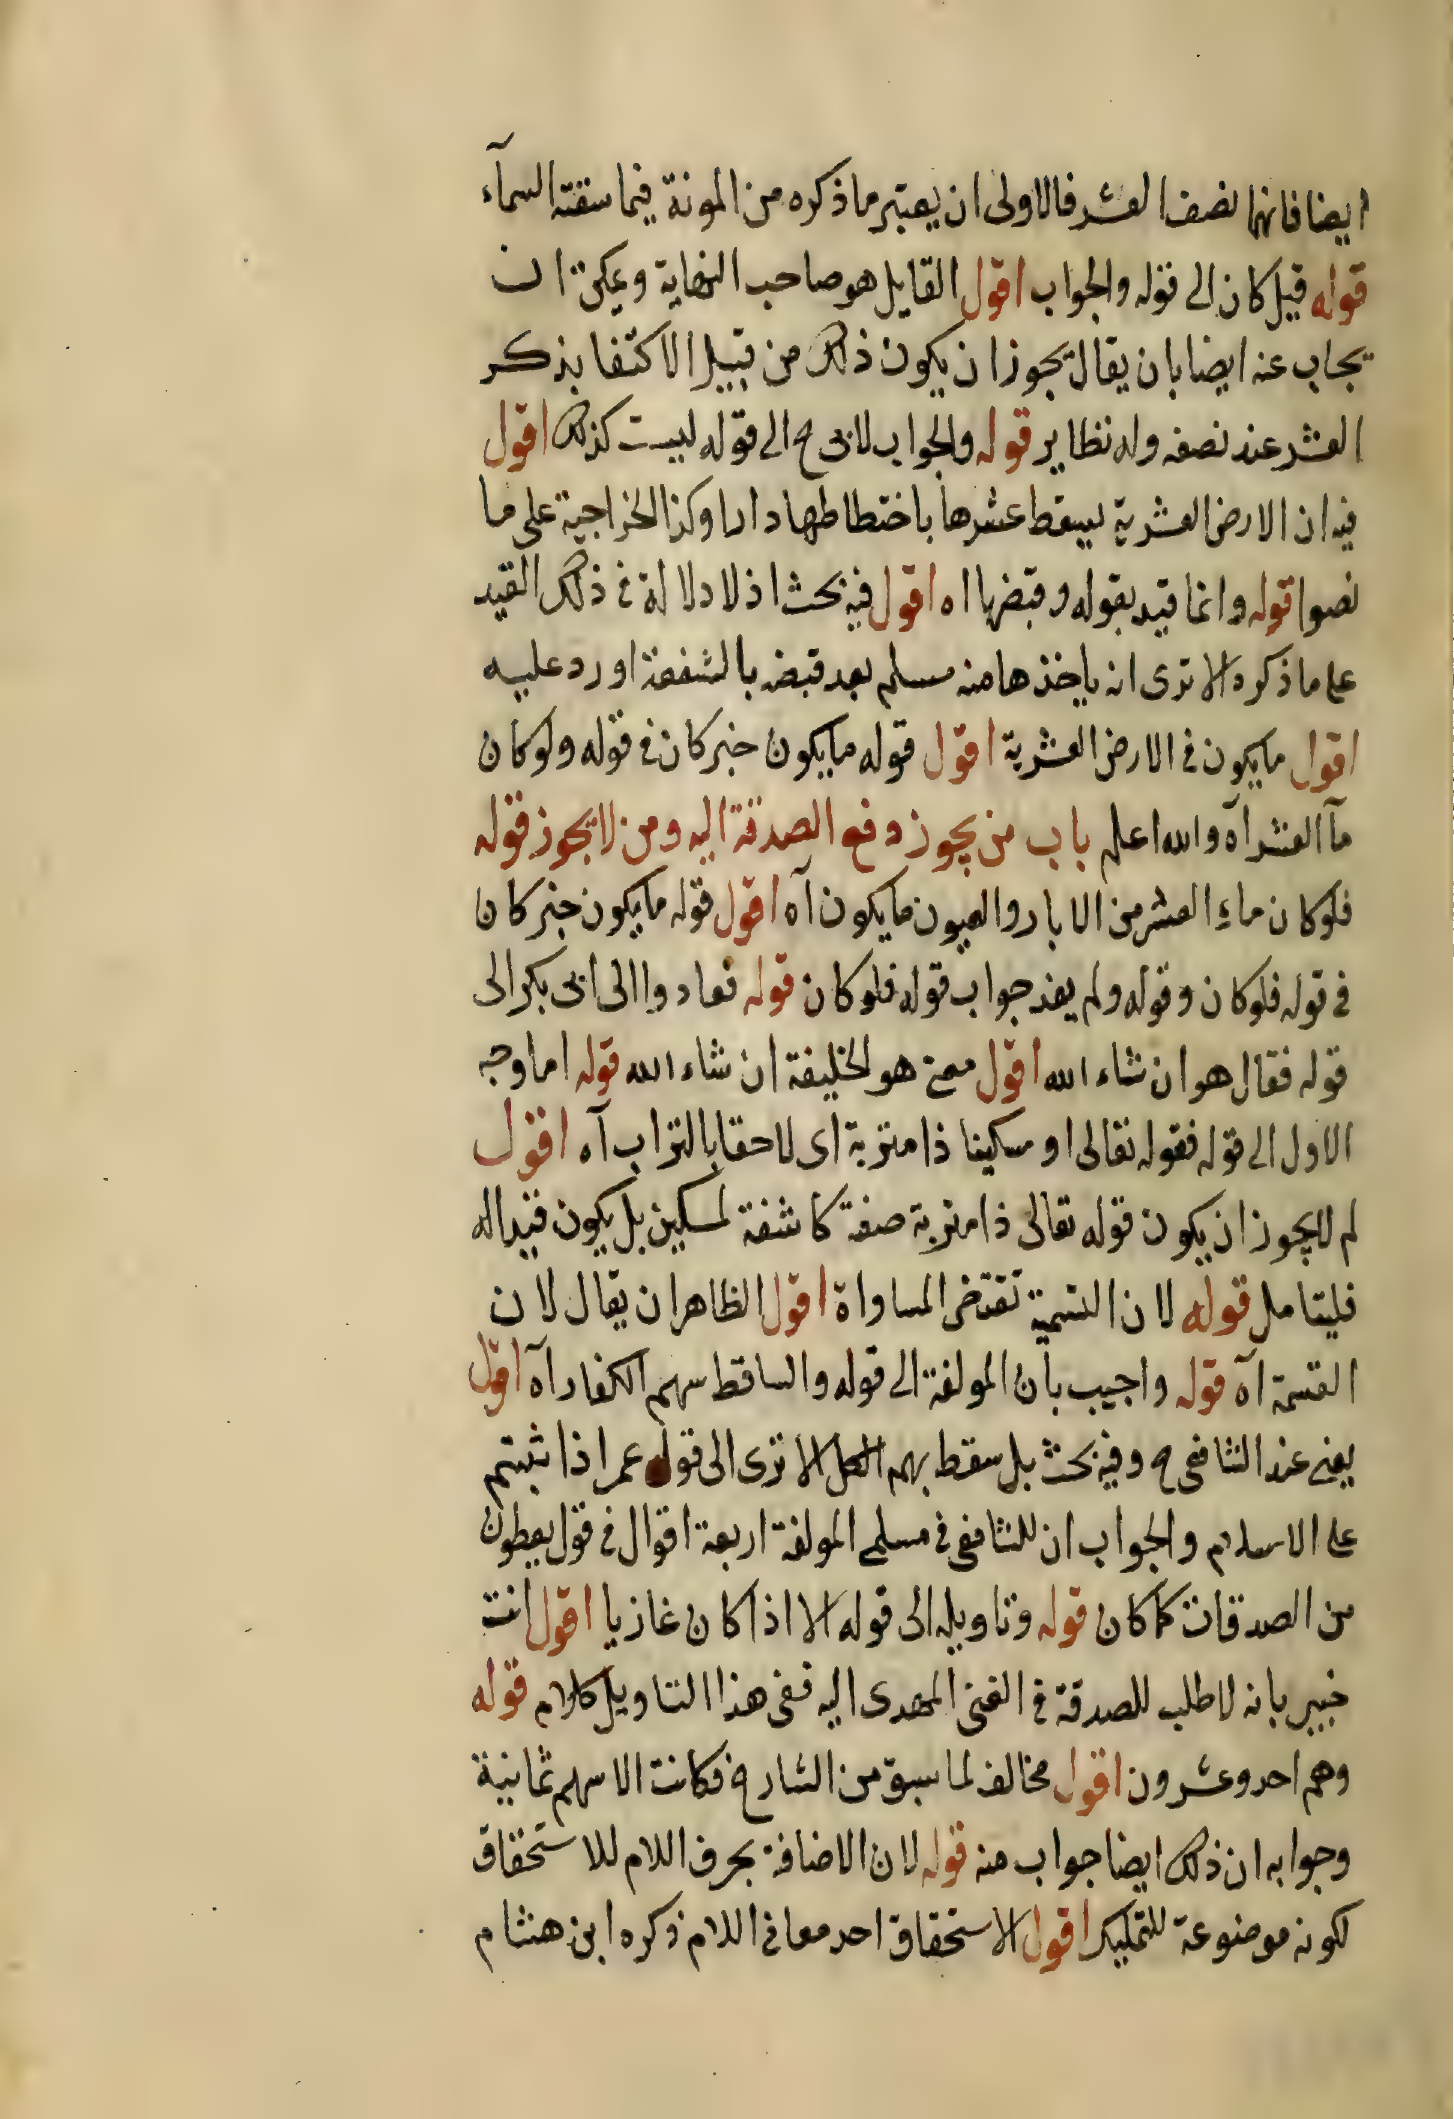 ايضا فانهما نصف العشر فالاولى ان يعتبر ما ذكره من المونة فيما سقته السمآء
قوله قيل كان الى قوله والجواب اقول القايل هو صاحب النهاية ويمكن ان
يجاب عنه ايضا بان يقال يجوز ان يكون ذلك من قبيل الاكتفا بذكر
العشر عند نصفه وله نظاير قوله والجواب لابى ح الى قوله ليست كذلك اقول
فيه ان الارض العشرية يسقط عشرها باختطاطها دارا وكذا الخراجية على ما
نصوا قوله وانما قيد بقوله وقبضها اه اقول فيه بحث اذ لا دلالة فى ذلك القيد
على ما ذكره الا ترى انه ياخذها منه مسلم بعد قبضه بالشفعة او رد عليه
اقول ما يكون فى الارض العشرية اقول قوله ما يكون خبر كان فى قوله ولو كان
مآ العشر آه والله اعلم باب من يجوز دفع الصدقة اليه ومن لا يجوز قوله
فلو كان ماء العشر من الابار والعيون ما يكون آه اقول قوله ما يكون خبر كان
فى قوله فلو كان وقوله ولم يفد جواب قوله فلو كان قوله فعادوا الى ابى بكر الى
قوله فقال هو ان شاء الله اقول معنى هو الخليفة ان شاء الله قوله اما وجه
الاول الى قوله فقوله تعالى او مسكينا ذا متربة اى لاحقا بالتراب آه اقول
لم لا يجوز ان يكون قوله تعالى ذا متربة صفة كاشفة لمسكين بل يكون قيدا له
فليتامل قوله لان التسمية تقتضى المساواة اقول الظاهر ان يقال لان
القسمة آه قوله واجيب بان المولفة الى قوله والساقط سهم الكفار آه اقول
يعنى عند الشافعى ح وفيه بحث بل سقط بهم الكل الا ترى الى قول عمر اذا ثبتم
على الاسلام والجواب ان للشافعى فى مسلمى المولفة اربعة اقوال فى قول يعطون
من الصدقات كما كان قوله وتاويله الى قوله الا اذا كان غازيا اقول انت
خبير بانه لا طلب للصدقة فى الغنى المهدى اليه ففى هذا التاويل كلام قوله
وهم احد وعشرون اقول مخالف لما سبق من الشارح فكانت الاسهم ثمانية
وجوابه ان ذلك ايضا جواب منه قوله لان الاضافة بحرف اللام للاستحقاق
لكونه موضوعة للتمليك اقول الاستحقاق احد معانى اللام ذكره ابن هشام